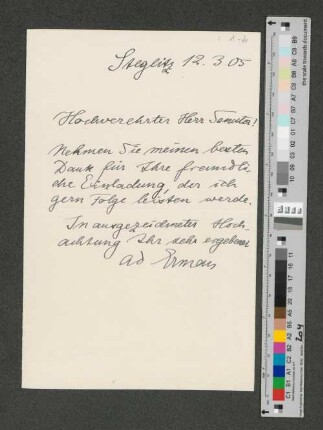 Steglitz 12.3.05
Hochverehrter Herr Senator!
Nehmen Sie meinen besten
Dank für Ihre freundli-
che Einladung, der ich
gern Folge leisten werde.
In ausgezeichneter Hoch-
achtung Ihr sehr ergebener
Ad Erman